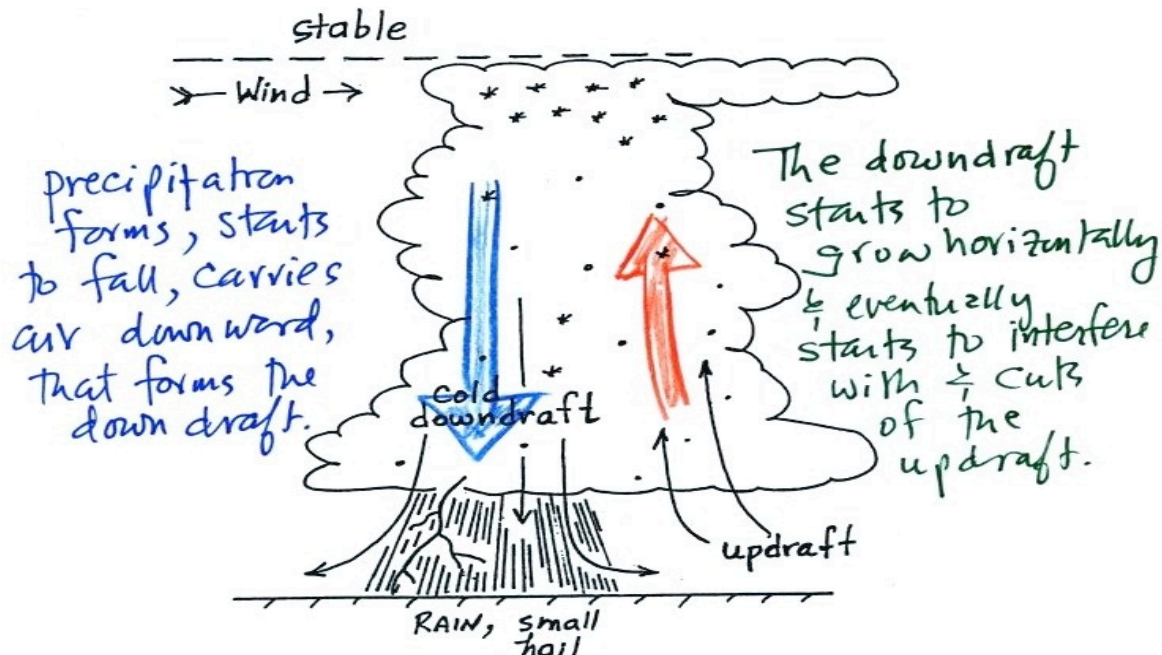 stable
Wind
precipitation
forms, starts
to fall, carries
air downward,
that forms the
down draft.
Cold
downdraft
The downdraft
starts to
grow horizontally
& eventually
starts to interfere
with & cuts
of the
updraft.
updraft
RAIN, small
hail